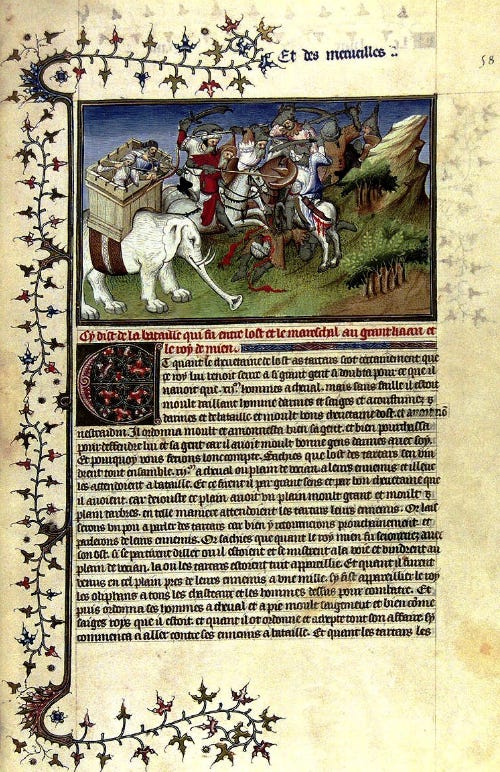 Et des merueilles
58
Cy dist de la bataille qui fu entre lost et le mareschal au grant kaan et
le roy de mien
Et quant le cheuetaine de lost as tartars scot certainement que
ce roy lui venoit seure a si grant gent si doubta pour ce que il
nauoit que xij.m hommes a cheual. mais sans faille il estoit
moult vaillant homme darmes et saiges et acoustumez
darmes et de bataille et moult bons cheuetaine dost. et auoit non
nestradin. Il ordonna moult et amonnesta bien sa gent. et bien pourchassa
pour deffendre lui et sa gent car il auoit moult bonne gens darmes auec soy.
Et pourquoy vous feroms lonc compte. Sachies que lost des tartars sen vin
drent tout ensamble xij.m a cheual ou plain de vocian a leurs ennemis et illeuc
les attendoient a bataille. Et ce firent il par grant sens et par bon cheuetaine que
il auoient. car deiouste ce plain auoit vn plain moult grant et moult
plain darbres. en telle maniere attendoient les tartars leurs ennemis. Or lais
serons vn pou a parler des tartars car bien y retournerons prouchainement. et
parlerons de leurs ennemis. Or sachies que quant le roy mien fu seiournez auec
son ost. si se partirent dilleuc ou il estoient et se mistrent a la voie et vindrent au
plain de vocian. la ou les tartars estoient tuit appareillie. Et quant il furent
venus en cel plain pres de leurs ennemis a vne mille. sy fist appareillier le roy
les oliphans a tous les chasteaux et les hommes dessus pour combatre. Et
puis ordonna ses hommes a cheual et a pie moult saigement et bien comme
saiges roys que il estoit. et quant il ot ordonne et son affaire sy
commenca a aler contre ses ennemis a bataille. Et quant les tartars les